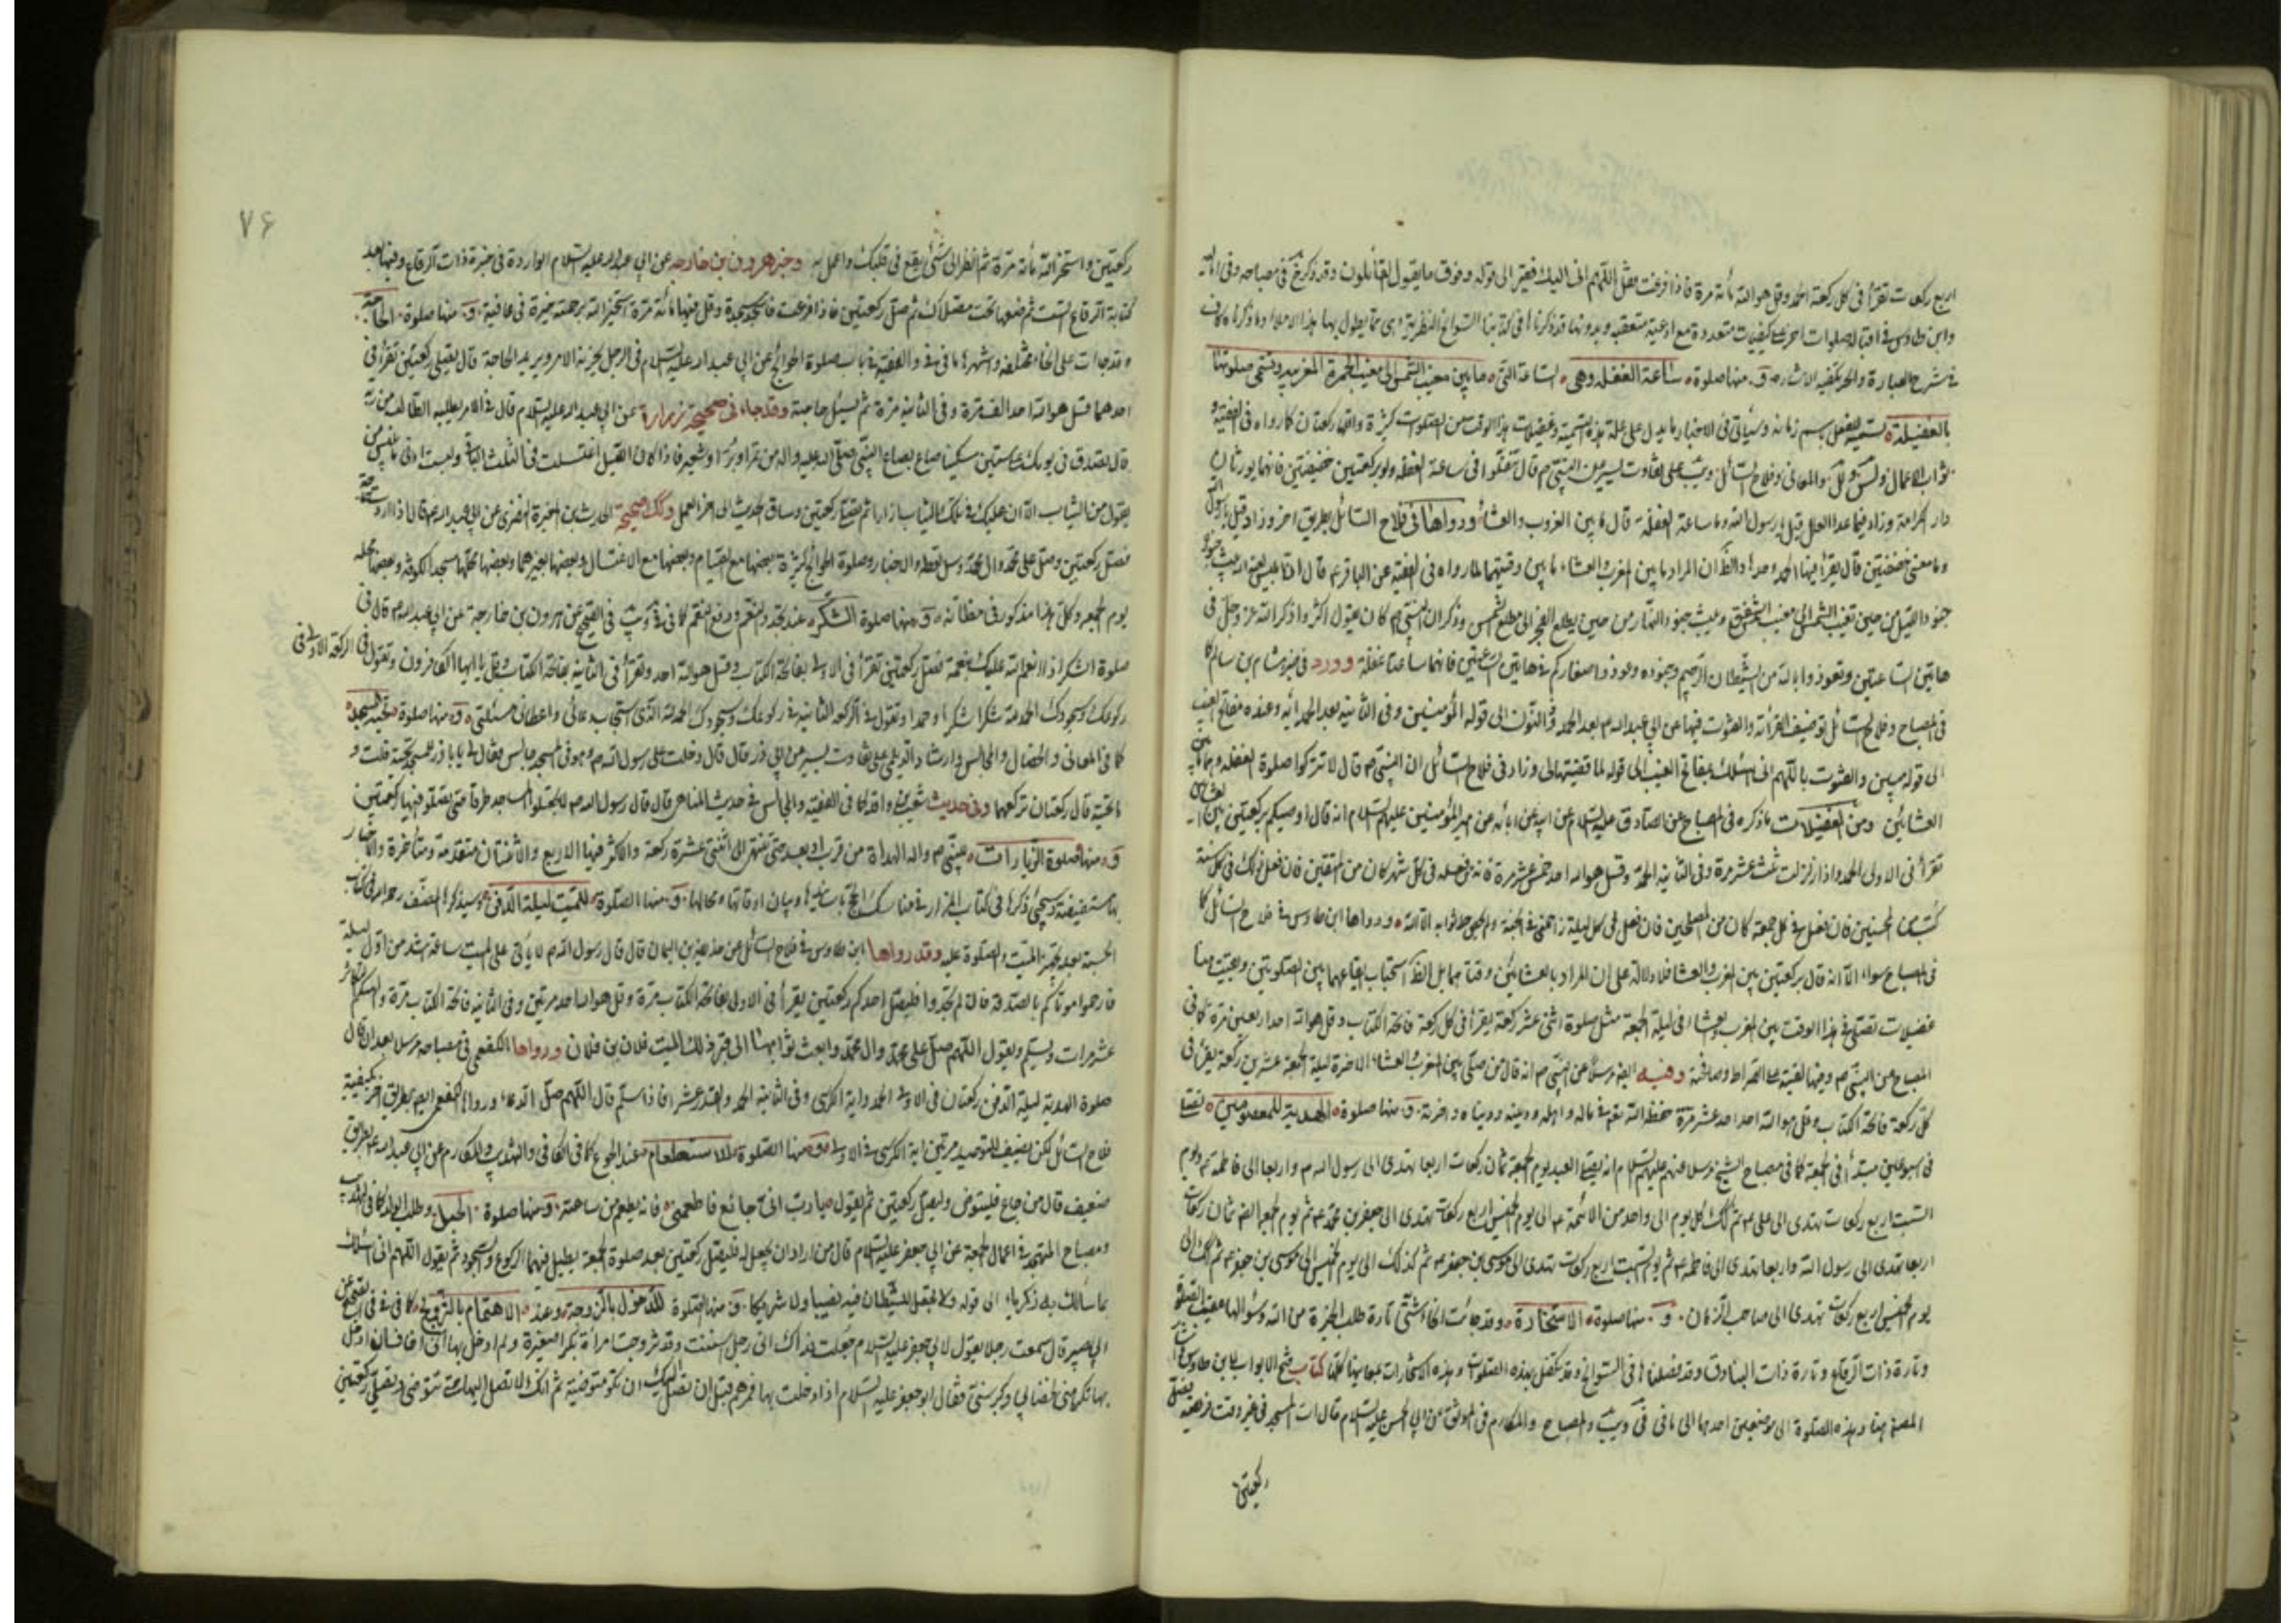 اربع ركعات تقرأ فى كل ركعة الحمد وقل هو الله مأته مرة فاذا فرغت فقل اللهم انى اليك فقير الى قوله وفوق ما يقول القائلون وقد ذكره فى مصباحه
وابن طاوس فى صلوات اخرى بكيفيات متعددة مع ادعية متعقبه وبدونها قد ذكرناها فى كتابنا السوانح النظرية
فى شرح العبارة والحر تكفيه الاشارة و منها صلوة ساعة الغفلة وهى الساعة التى ما بين مغيب الشمس الى مغيب الحمرة المغربية وتسمى صلوتها
بالغفيلة
ثواب الاعمال والمعانى وفلاح السائل عن النبى ص قال تنفلوا فى ساعة الغفلة ولو بركعتين خفيفتين فانهما يورثان
دار الكرامة وزاد فيما عدا العلل قيل يا رسول الله وما ساعة الغفلة قال ما بين الغروب والعشاء ورواها فى فلاح السائل بطريق اخر وزاد قيل يا رسول الله
وما معنى خفيفتين قال يقرأ فيها الحمد وحدها والظاهر ان المراد ما بين المغرب والعشاء ما بين وقتيهما لما رواه فى الفقيه عن الباقر ع قال ان ابليس
جنود الليل من حين تغيب الشمس الى مغيب الشفق ويبث جنود النهار من حين يطلع الفجر الى مطلع الشمس وذكر ان النبى ص كان يقول اكثروا ذكر الله عز وجل فى
هاتين الساعتين وتعوذوا بالله من الشيطان الرجيم وجنوده وعوذوا صغاركم فى هاتين الساعتين فانهما ساعتا غفلة وورد فى خبر هشام بن سالم كما
فى المصباح وفلاح السائل توصيف القرأة والقنوت فيها عن ابى عبد الله ع بعد الحمد وذا النون الى قوله المؤمنين وفى الثانية بعد الحمد اية وعنده مفاتح الغيب
الى قوله مبين والقنوت باللهم انى اسئلك بمفاتح الغيب الى قوله لما قضيتها لى وزاد فى فلاح السائل ان النبى ص قال لا تتركوا صلوة الغفلة وهما ما بين
العشائين ومن الغفيلات ما ذكره فى المصباح عن الصادق عليه السلام عن ابيه عن ابائه عن امير المؤمنين عليهم السلام انه قال اوصيكم بركعتين بين العشائين
تقرأ فى الاولى الحمد واذا زلزلت ثلث عشر مرة وفى الثانية الحمد وقل هو الله احد خمس عشر مرة فانه من فعله فى كل شهر كان من المتقين فان فعل ذلك فى كل سنة
كتب من المحسنين فان فعل فى كل جمعة كان من المصلحين فان فعل فى كل ليلة زاحمنى فى الجنة ولم يحص ثوابه الا الله ورواها ابن طاوس فى فلاح السائل كما
فى المصباح سواء الا انه قال بركعتين بين المغرب والعشاء فلا دلالة على ان المراد بالعشائين وقتاهما بل الظاهر استحباب ايقاعهما بين الصلوتين
غفيلات تصلى فى هذا الوقت بين المغرب والعشاء فى ليلة الجمعة مثل صلوة اثنى عشر ركعة يقرأ فى كل ركعة فاتحة الكتاب وقل هو الله احد اربعين مرة كما فى
المصباح عن النبى ص وفيها لقيته على الصراط وصافحته وفيه ايضا مرسلا عن النبى ص انه قال من صلى بين المغرب والعشاء الاخرة ليلة الجمعة عشرين ركعة يقرأ فى
كل ركعة فاتحة الكتاب وقل هو الله احد احد عشر مرة حفظه الله تعالى فى ماله واهله ودينه ودنياه واخرته و منها صلوة الهدية للمعصومين
فى اسبوعين مبتدأ فى الجمعة كما فى مصباح الشيخ مرسلا عنهم عليهم السلام انه يصلى العبد يوم الجمعة ثمان ركعات اربعا تهدى الى رسول الله ص واربعا الى فاطمة ع ويوم
السبت اربع ركعات تهدى الى على ع ثم كذلك كل يوم الى واحد من الائمة ع الى يوم الخميس اربع ركعات تهدى الى جعفر بن محمد ع ثم يوم الجمعة ايضا ثمان ركعات
اربعا تهدى الى رسول الله واربعا تهدى الى فاطمة ع ثم يوم السبت اربع ركعات تهدى الى موسى بن جعفر ع ثم كذلك الى
يوم الخميس اربع ركعات تهدى الى صاحب الزمان و منها صلوة الاستخارة وقد جائت على انحاء شتى تارة طلب الخيرة من الله وسؤالها عقيب الصلوة
وتارة ذات الرقاع وتارة ذات البنادق وقد فصلناها فى السوانح وقد تكفل بهذه الصلوات وهذه الاستخارات كتاب فتح الابواب لابن طاوس
المصنف هنا وبهذه الصلوة الى موضعين احدهما الى ما فى فى ويب والمصباح والمكارم فى الموثق عن ابى الحسن عليه السلام قال ات المسجد فى غير وقت فريضة فصل
ركعتين
٧٦
ركعتين واستخر الله مأته مرة ثم انظر الى شئ يقع فى قلبك واعمل به وخبر هرون بن خارجه عن ابى عبد الله عليه السلام الواردة فى خيرة ذات الرقاع وفيها بعد
كتابة الرقاع الست ثم ضعها تحت مصلاك ثم صل ركعتين فاذا فرغت فاسجد سجدة وقل فيها مأته مرة استخير الله برحمته خيرة فى عافية و منها صلوة الحاجة
وقد جائت على انحاء مختلفة واشهرها ما فى فى والفقيه فى باب صلوة الحوائج عن ابى عبد الله عليه السلام فى الرجل يحزنه الامر ويريد الحاجة قال يصلى ركعتين تقرأ فى
احدهما قل هو الله احد الف مرة وفى الثانية مرة ثم يسئل حاجته وقد جاء فى صحيحة زرارة عن ابى عبد الله عليه السلام قال فى الامر يطلبه الطالب من ربه
قال تصدق فى يومك على ستين مسكينا صاع بصاع النبى صلى الله عليه واله من تمر او بر او شعير فاذا كان الليل اغتسلت فى الثلث الباقى ولبست ادنى ما يلبس من
تعول من الثياب الا ان عليك فى تلك الثياب ازارا ثم تصلى ركعتين وساق الحديث الى اخر العمل وكذلك صحيحة الحرث بن المغيرة النضرى عن ابى عبد الله ع قال اذا اردت حاجة
فصل ركعتين وصل على محمد وال محمد وسل تعطه والاخبار وصلوة الحوائج كثيرة بعضها مع الصيام وبعضها مع الاغتسال وبعضها بغيرهما وبعضها محلها مسجد الكوفة وبعضها محله
يوم الجمعة وكل هذا مذكور فى مظانه و منها صلوة الشكر عند تجدد النعم ودفع النقم كما فى فى ويب فى الصحيح عن هرون بن خارجة عن ابى عبد الله ع قال فى
صلوة الشكر اذا انعم الله عليك بنعمة فصل ركعتين تقرأ فى الاولى بفاتحة الكتاب وقل هو الله احد وتقرأ فى الثانية بفاتحة الكتاب وقل يا ايها الكافرون وتقول فى الركعة الاولى فى
ركوعك وسجودك الحمد لله شكرا شكرا وحمدا وتقول فى الركعة الثانية فى ركوعك وسجودك الحمد لله الذى استجاب دعائى واعطانى مسئلتى و منها صلوة تحية المسجد
كما فى المعانى والخصال والمجالس وارشاد الديلمى على تفاوت يسير عن ابى ذر قال قال دخلت على رسول الله ص وهو فى المسجد جالس فقال لى يا باذر للمسجد تحية قلت و
ما تحيته قال ركعتان تركعهما وفى حديث شعيب بن واقد كما فى الفقيه والمجالس فى حديث المناهى قال قال رسول الله ص لا تجعلوا المساجد طرقا حتى تصلوا فيها ركعتين
و منها صلوة الزيارات للنبى ص واله الهداة من قرب او بعد حتى تنتهى الى اثنتى عشرة ركعة والاكثر فيها الاربع والاثنتان متقدمة ومتاخرة والاخبار
بها مستفيضة وسيجئ ذكرها فى كتاب المزار فى مناسك الحج وبيان اوقاتها ومحالها و منها الصلوة للميت ليلة الدفن وسيذكرها المصنف رحمه الله فى كتاب
الحسبة بعد تجهيز الميت والصلوة عليه وقد رواها ابن طاوس فى فلاح السائل عن حذيفة بن اليمان قال قال رسول الله ص لا يأتى على الميت ساعة اشد من اول ليلة
فارحموا موتاكم بالصدقة فان لم تجدوا فليصل احدكم ركعتين يقرأ فى الاولى بفاتحة الكتاب مرة وقل هو الله احد مرتين وفى الثانية فاتحة الكتاب مرة والهيكم التكاثر
عشر مرات ويسلم ويقول اللهم صل على محمد وال محمد وابعث ثوابها الى قبر ذلك الميت فلان بن فلان ورواها الكفعمى فى مصباحه مرسلا بعد ان قال
صلوة الهدية ليلة الدفن ركعتان فى الاولى الحمد واية الكرسى وفى الثانية الحمد والقدر عشرا فاذا سلم قال اللهم صل الدعاء ورواها الكفعمى ايضا بطريق اخر بكيفية
فلاح السائل لكن بضيف التوحيد مرتين اية الكرسى فى الاولى و منها الصلوة للاستطعام عند الجوع كما فى الكافى والتهذيب والمكارم عن ابى عبد الله ع بطريق
ضعيف قال من جاع فليتوض وليصل ركعتين ثم يقول يا رب انى جائع فاطعمنى فانه يطعم من ساعته و منها صلوة الحبل وطلب الولد كما فى التهذيب
ومصباح المتهجد فى اعمال الجمعة عن ابى جعفر عليه السلام قال من اراد ان يحبل له فليصل ركعتين بعد صلوة الجمعة يطيل فيهما الركوع والسجود ثم يقول اللهم انى اسئلك
بما سألك به زكريا الى قوله ولا تجعل للشيطان فيه نصيبا ولا شريكا و منها الصلوة للدخول بالزوجة وعند الاهتمام بالتزويج كما فى فى فى الصحيح عن
ابى بصير قال سمعت رجلا يقول لابى جعفر عليه السلام جعلت فداك انى رجل اسننت وقد تزوجت امرأة بكرا صغيرة ولم ادخل بها انى اخاف ان ادخل
بها تكرهنى لخضابى وكبر سنى فقال ابو جعفر عليه السلام اذا دخلت بها فمرهم قبل ان تصل اليك ان تكون متوضئة ثم انت لا تصل اليها حتى تتوضى وتصلى ركعتين